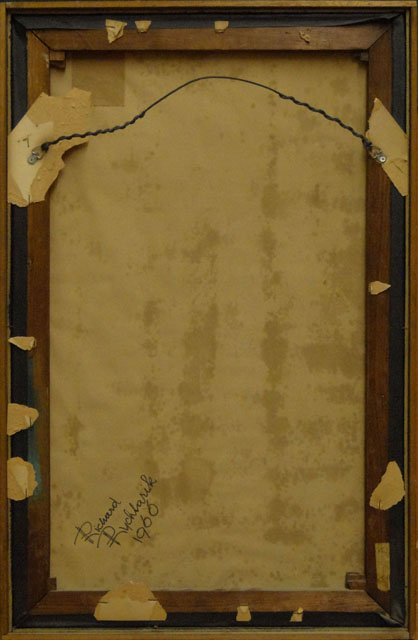 Richard
Rychtarik
1960